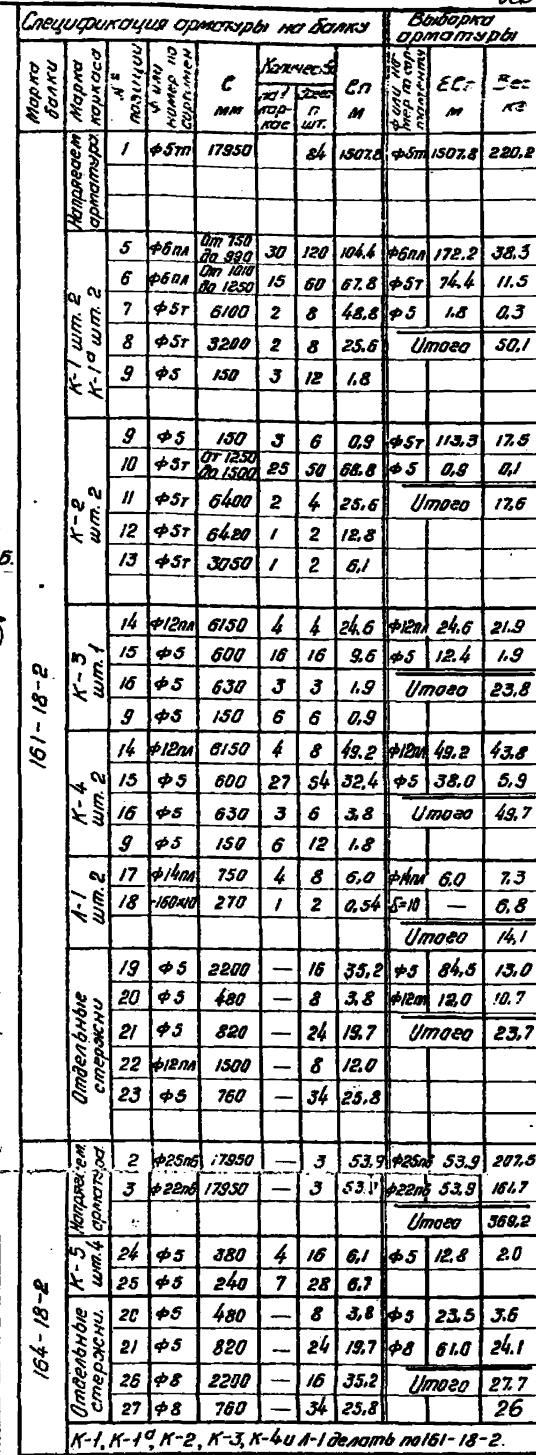 Спецификация арматуры на балку | Выборка арматуры
Марка балки | Марка каркаса | №№ позиции | ф или номер по сортимен | ℓ мм | Количество на 1 каркас | n шт. | ℓn м | ф или номер по сортаменту | Σℓn м | Вес кг
161-18-2
Напрягаем арматура
1 | ф5т | 17950 | | 84 | 1507.8 | ф5т | 1507.8 | 220.2
К-1 шт. 2
К-1ª шт. 2
5 | ф6пл | От 750 до 990 | 30 | 120 | 104.4 | ф6пл | 172.2 | 38.3
6 | ф6пл | От 1010 до 1250 | 15 | 60 | 67.8 | ф5т | 74.4 | 11.5
7 | ф5т | 6100 | 2 | 8 | 48.8 | ф5 | 1.8 | 0,3
8 | ф5т | 3200 | 2 | 8 | 25.6 | Итого | 50,1
9 | ф5 | 150 | 3 | 12 | 1.8
К-2 шт. 2
9 | ф5 | 150 | 3 | 6 | 0,9 | ф5т | 113,3 | 17.5
10 | ф5т | От 1250 до 1500 | 25 | 50 | 68.8 | ф5 | 0,9 | 0,1
11 | ф5т | 6400 | 2 | 4 | 25.6 | Итого | 17,6
12 | ф5т | 6420 | 1 | 2 | 12.8
13 | ф5т | 3050 | 1 | 2 | 6,1
К-3 шт. 1
14 | ф12пл | 6150 | 4 | 4 | 24.6 | ф12пл | 24.6 | 21.9
15 | ф5 | 600 | 16 | 16 | 9.6 | ф5 | 12.4 | 1.9
16 | ф5 | 630 | 3 | 3 | 1.9 | Итого | 23,8
9 | ф5 | 150 | 6 | 6 | 0.9
К-4 шт. 2
14 | ф12пл | 6150 | 4 | 8 | 49.2 | ф12пл | 49.2 | 43.8
15 | ф5 | 600 | 27 | 54 | 32.4 | ф5 | 38.0 | 5.9
16 | ф5 | 630 | 3 | 6 | 3,8 | Итого | 49.7
9 | ф5 | 150 | 6 | 12 | 1.8
Л-1 шт. 2
17 | ф14пл | 750 | 4 | 8 | 6,0 | ф14пл | 6.0 | 7.3
18 | -160×10 | 270 | 1 | 2 | 0,54 | δ=10 | — | 6,8
Итого | 14,1
Отдельные стержни
19 | ф5 | 2200 | — | 16 | 35,2 | ф5 | 84,5 | 13.0
20 | ф5 | 480 | — | 8 | 3,8 | ф12пл | 12,0 | 10.7
21 | ф5 | 820 | — | 24 | 19.7 | Итого | 23,7
22 | ф12пл | 1500 | — | 8 | 12.0
23 | ф5 | 760 | — | 34 | 25.8
164-18-2
Напрягаем. арматура
2 | ф25пб | 17950 | — | 3 | 53.9 | ф25пб | 53.9 | 207.5
3 | ф22пб | 17950 | — | 3 | ф22пб | 53.9 | 161.7
Итого | 369.2
К-5 шт. 4
24 | ф5 | 380 | 4 | 16 | 6,1 | ф5 | 12.8 | 2.0
25 | ф5 | 240 | 7 | 28 | 6.7
Отдельные стержни.
20 | ф5 | 480 | — | 8 | 3,8 | ф5 | 23.5 | 3.6
21 | ф5 | 820 | — | 24 | 19.7 | ф8 | 61.0 | 24.1
26 | ф8 | 2200 | — | 16 | 35.2 | Итого | 27.7
27 | ф8 | 760 | — | 34 | 25.8 | 26
К-1, К-1ª, К-2, К-3, К-4 и Л-1 делать по 161-18-2.